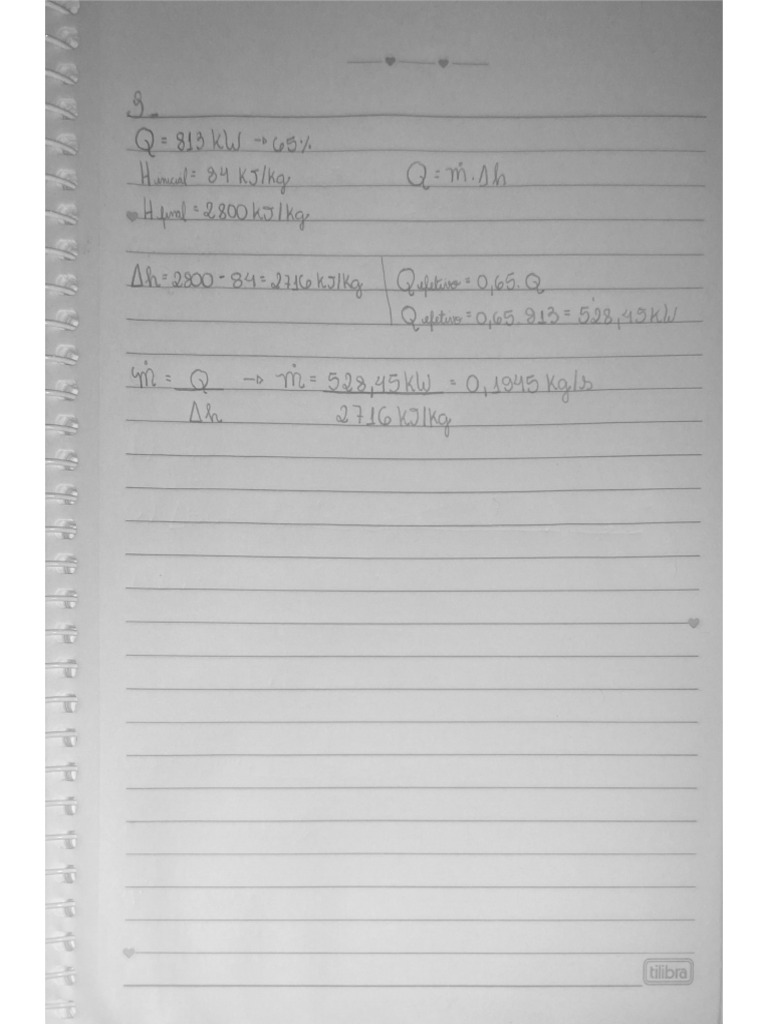 9_
Q = 813 kW → 65%
H inicial = 84 KJ/kg
Q = ṁ . Δh
H final = 2800 KJ/kg
Δh = 2800 - 84 = 2716 KJ/kg
Q efetivo = 0,65 . Q
Q efetivo = 0,65 . 813 = 528,45 kW
ṁ = Q → ṁ = 528,45 kW = 0,1945 kg/s
Δh 2716 KJ/kg
tilibra